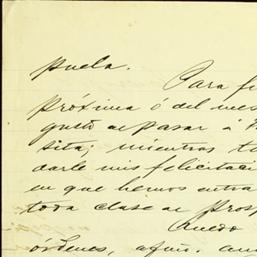 puela.
Para fi
próxima ó del mes
gusto de pasar á
sita; mientras ta
darle mis felicitaci
en que hemos entra
toda clase de Prosp
Quedo
órdenes, afmo. am